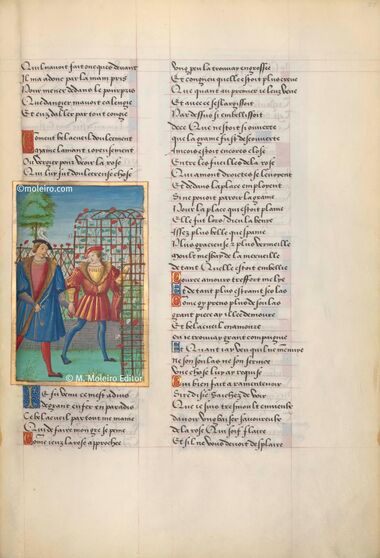 Quil mavoit fait oneques devant
Il ma adonc par la main pris
Pour mener dedans le pourpris
Que dangier mavoit calengie
Et euz daller par tout congie
Coment bel acueil doulcement
Maine lamant ioieusement
Ou vergier pour veoir la rose
Qui luy fut doulcereuse chose
©moleiro.com
© M. Moleiro Editor
Je fu venu ce mest advis
De grant enfer en paradis
Ce bel acueil par tout me maine
Qui de faire mon gre se peine
Come ieuz la rose approchee
Ung peu la trouvay engrossee
Et congneu quelle estoit plus creue
Que quant au premier ie leuz veue
Et avec ce seslargissoit
Par dessus si embellissoit
Dece Que ne stoit si ouverte
que la graine fust descouverte
Aincois estoit encores close
Entre les fueilles de la rose
Qui amont droictes se levoient
Et dedans la place emploient
Si ne pouoit paroir la graine
Pour la place qui estoit plaine
Elle fut lors dieu la benye
Assez plus belle que
Plus gracieuse & plus vermeille
Moult mesbay de la merveille
de tant Quelle estoit embellie
Et de tant plus estraint ses las
Come ie prens plus de soulas
grant piece ay illec demoure
Et bel acueil enamoure
ou ie trouvay grant compaignie
Et Quant iay veu quil ne me nye
ne son soulas ne son service
Une chose luy ay requise
Qui bien fait a ramentevoir
Sire dis ie sachez de voir
Que ie suis tresmoult envieux
davoir ung baiser savoureux
de la rose Qui soif flaire
Et sil ne vous devoit desplaire